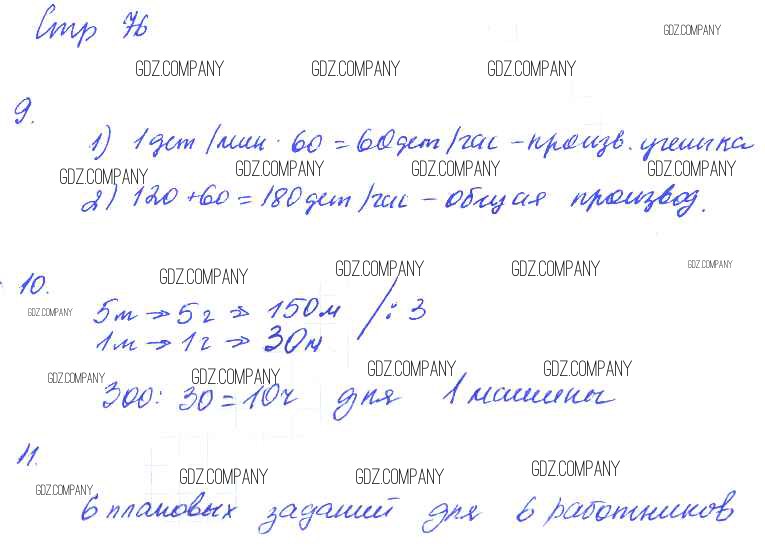 Стр 76
GDZ.COMPANY
GDZ.COMPANY GDZ.COMPANY GDZ.COMPANY
9.
1) 1дет/мин · 60 = 60дет/час - произв. ученика
GDZ.COMPANY GDZ.COMPANY GDZ.COMPANY GDZ.COMPANY
2) 120 + 60 = 180дет/час - общая производ.
GDZ.COMPANY GDZ.COMPANY GDZ.COMPANY GDZ.COMPANY
10.
GDZ.COMPANY
5м → 5г → 150м /: 3
1м → 1г → 30м
GDZ.COMPANY GDZ.COMPANY GDZ.COMPANY GDZ.COMPANY
300 : 30 = 10ч для 1 машины
11.
GDZ.COMPANY GDZ.COMPANY GDZ.COMPANY GDZ.COMPANY
6 плановых заданий для 6 работников